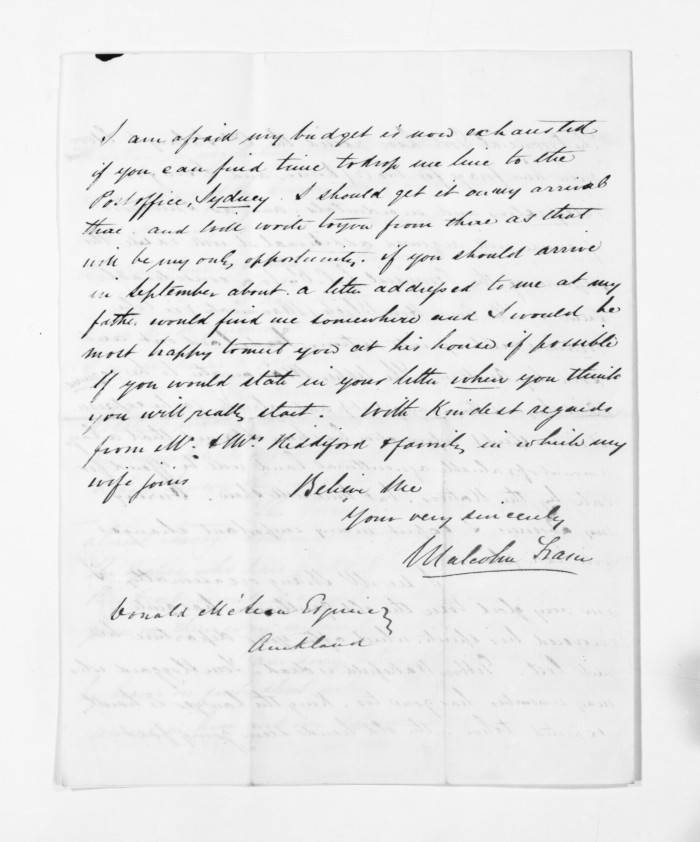 I am afraid my budget is now exhausted
if you can find time to drop me line to the
Post office, Sydney. I should get it on my arrival
there. and will wrote to you from there as that
will be my only opportunity. if you should arrive
in September about. a letter addressed to me at my
fathr. would find me somewhere and I would be
most happy to meet you at his house if possible
If you would state in your letter when you think
you will really start. With Kindest regards
from Mr. & Mrs Hiddiford & family in which my
wife joins
Believe Me
Your very sincerely
Malcolm Fraser
Donald McLean Esquire
Auckland